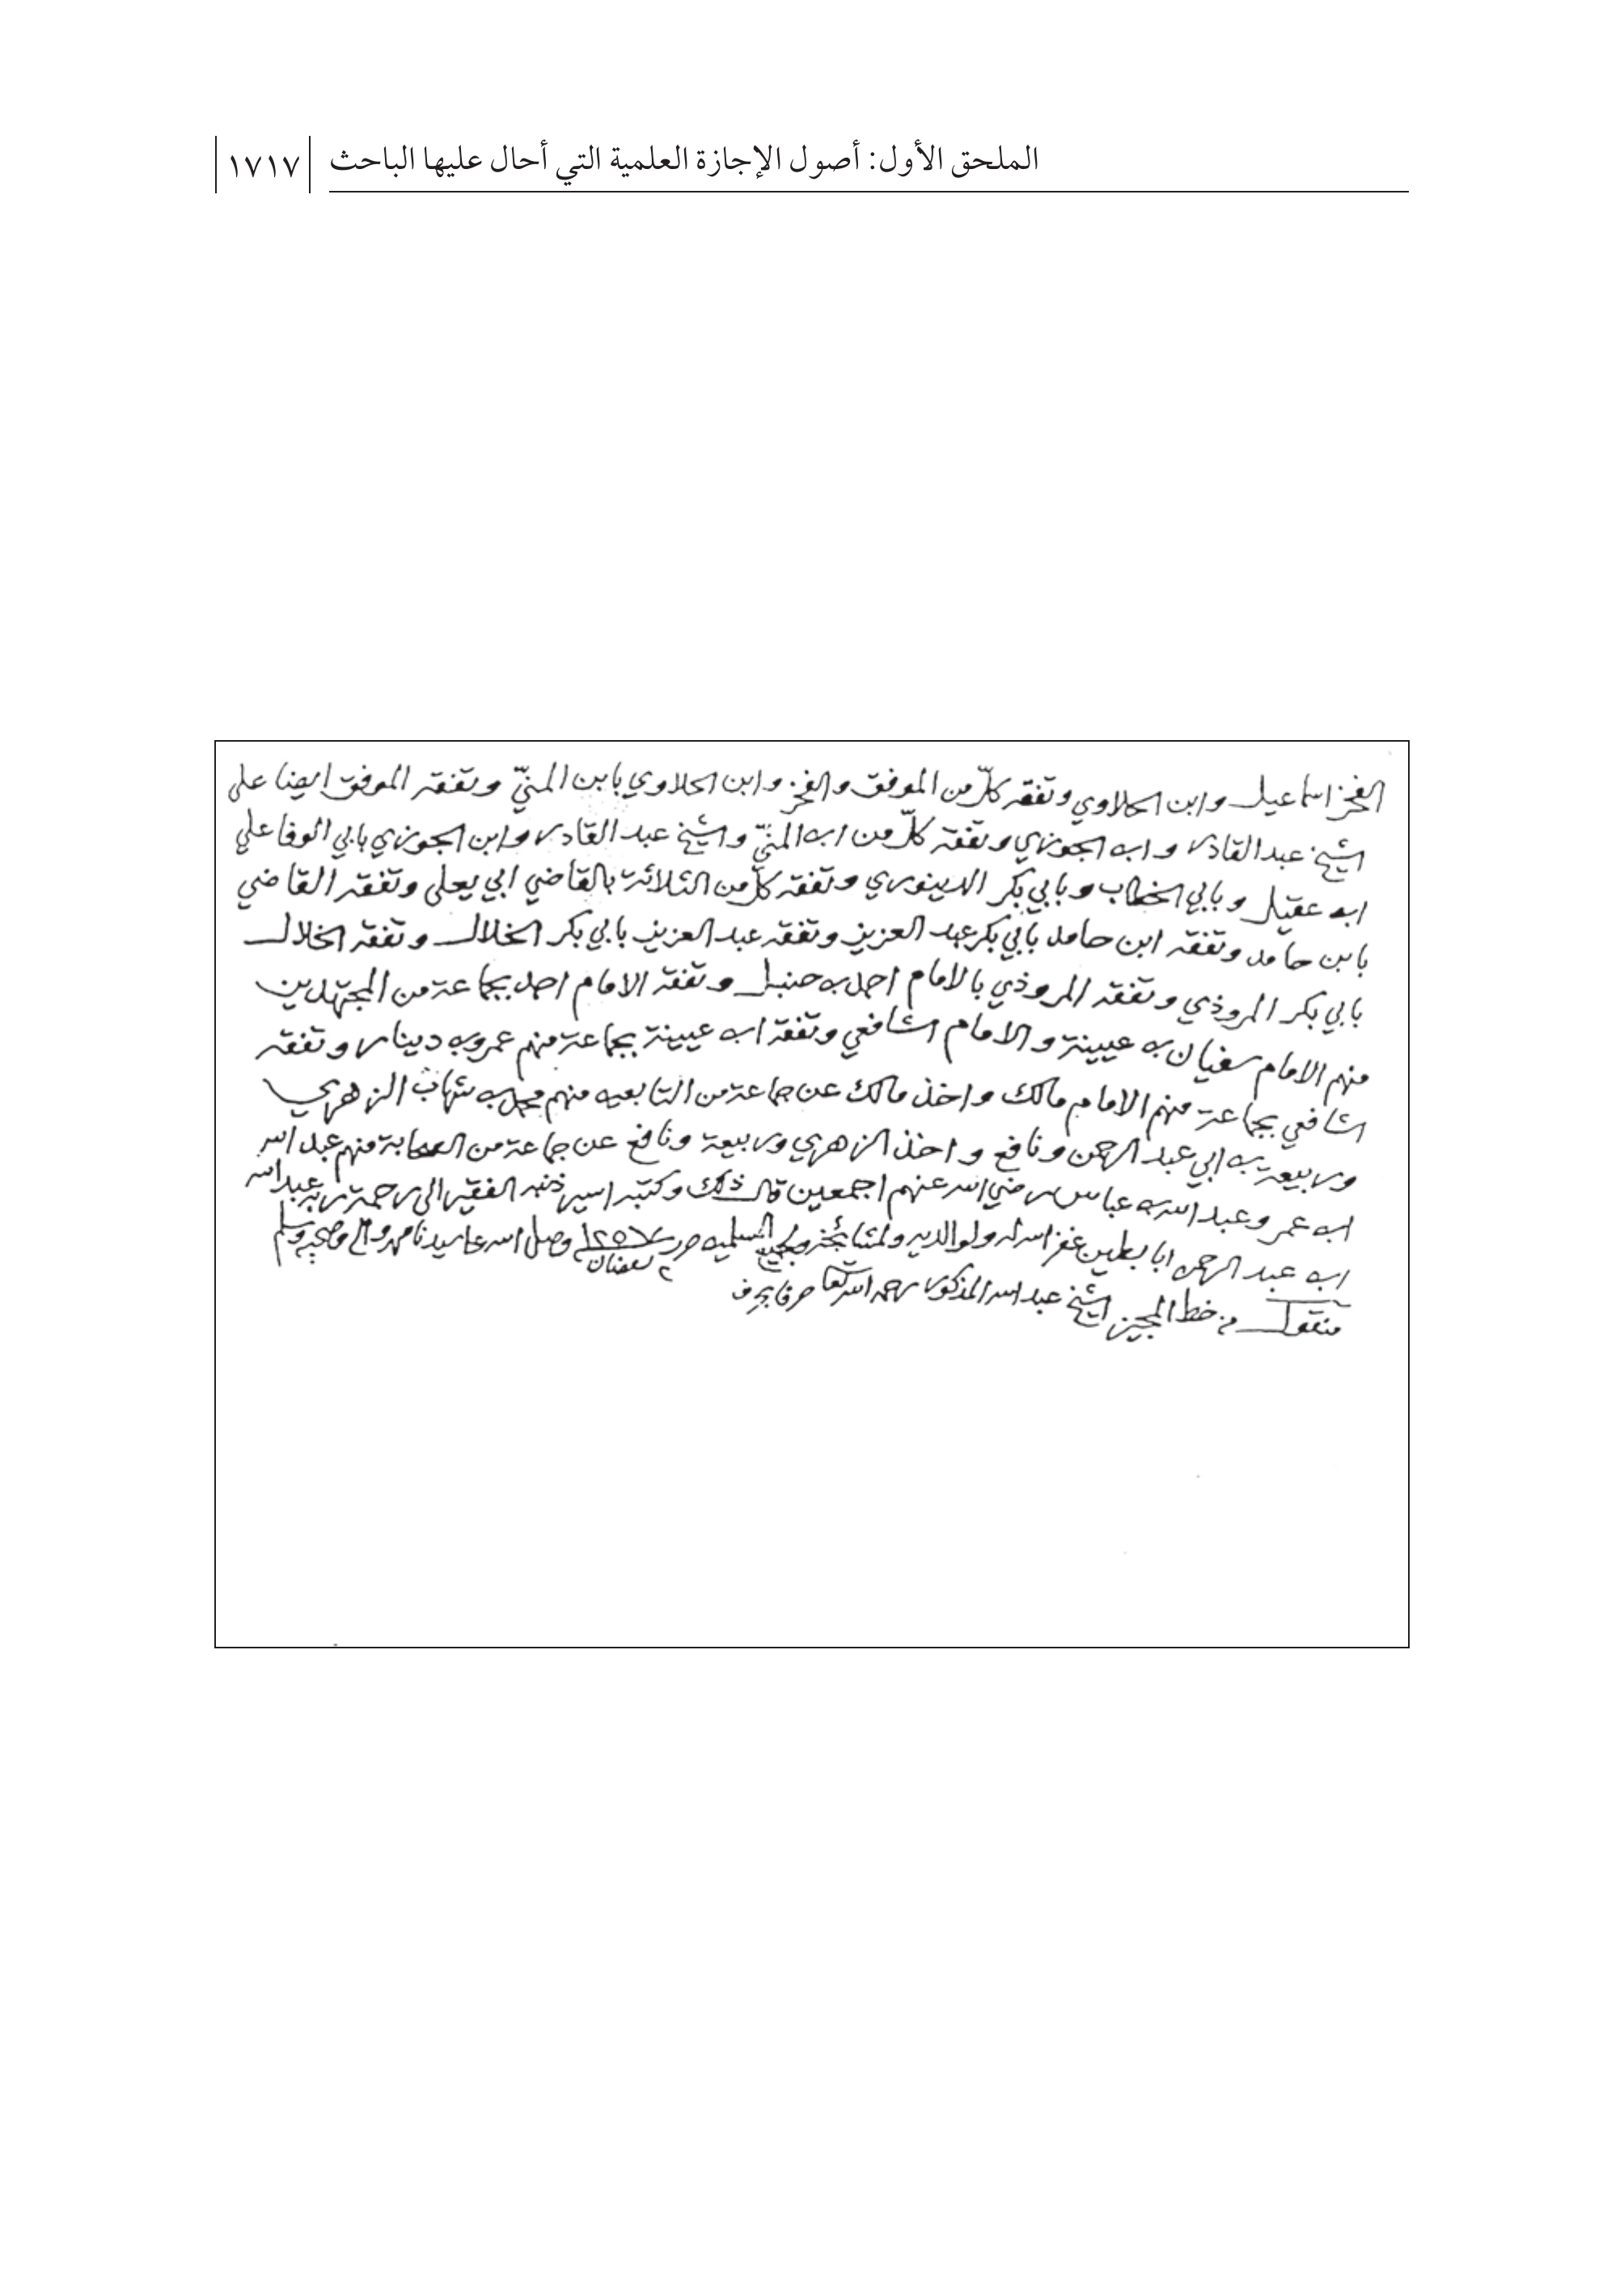 الملحق الأول: أصول الإجازة العلمية التي أحال عليها الباحث ١٧١٧
الفخر اسماعيل وابن الحلاوي وتفقه كلّ من الموفق والفخر وابن الحلاوي بابن المنيّ وتفقه الموفق ايضا على
الشيخ عبد القادر وابن الجوزي وتفقه كلّ من ابن المنيّ والشيخ عبد القادر وابن الجوزي بابي الوفا علي
ابن عقيل وبابي الخطاب وبابي بكر الدينوري وتفقه كلّ من الثلاثة بالقاضي ابي يعلى وتفقه القاضي
بابن حامد وتفقه ابن حامد بابي بكر عبد العزيز وتفقه عبد العزيز بابي بكر الخلال وتفقه الخلال
بابي بكر المروذي وتفقه المروذي بالامام احمد بن حنبل وتفقه الامام احمد بجماعة من المجتهدين
منهم الامام سفيان بن عيينة والامام الشافعي وتفقه ابن عيينة بجماعة منهم عمرو بن دينار وتفقه
الشافعي بجماعة منهم الامام مالك واخذ مالك عن جماعة من التابعين منهم محمد بن شهاب الزهري
وربيعة بن ابي عبد الرحمن ونافع واخذ الزهري وربيعة ونافع عن جماعة من الصحابة منهم عبد الله
ابن عمر وعبد الله بن عباس رضي الله عنهم اجمعين قال ذلك وكتبه اسير ذنبه الفقير الى رحمة ربه عبد الله
ابن عبد الرحمن ابا بطين غفر الله له ولوالديه ولمشايخه ولجميع المسلمين حرر ١٢٥٧ وصلى الله على سيدنا محمد واله وصحبه وسلم
٢ رمضان
منقول من خط المجيز الشيخ عبد الله المذكور رحمه الله تعالى حرفا بحرف